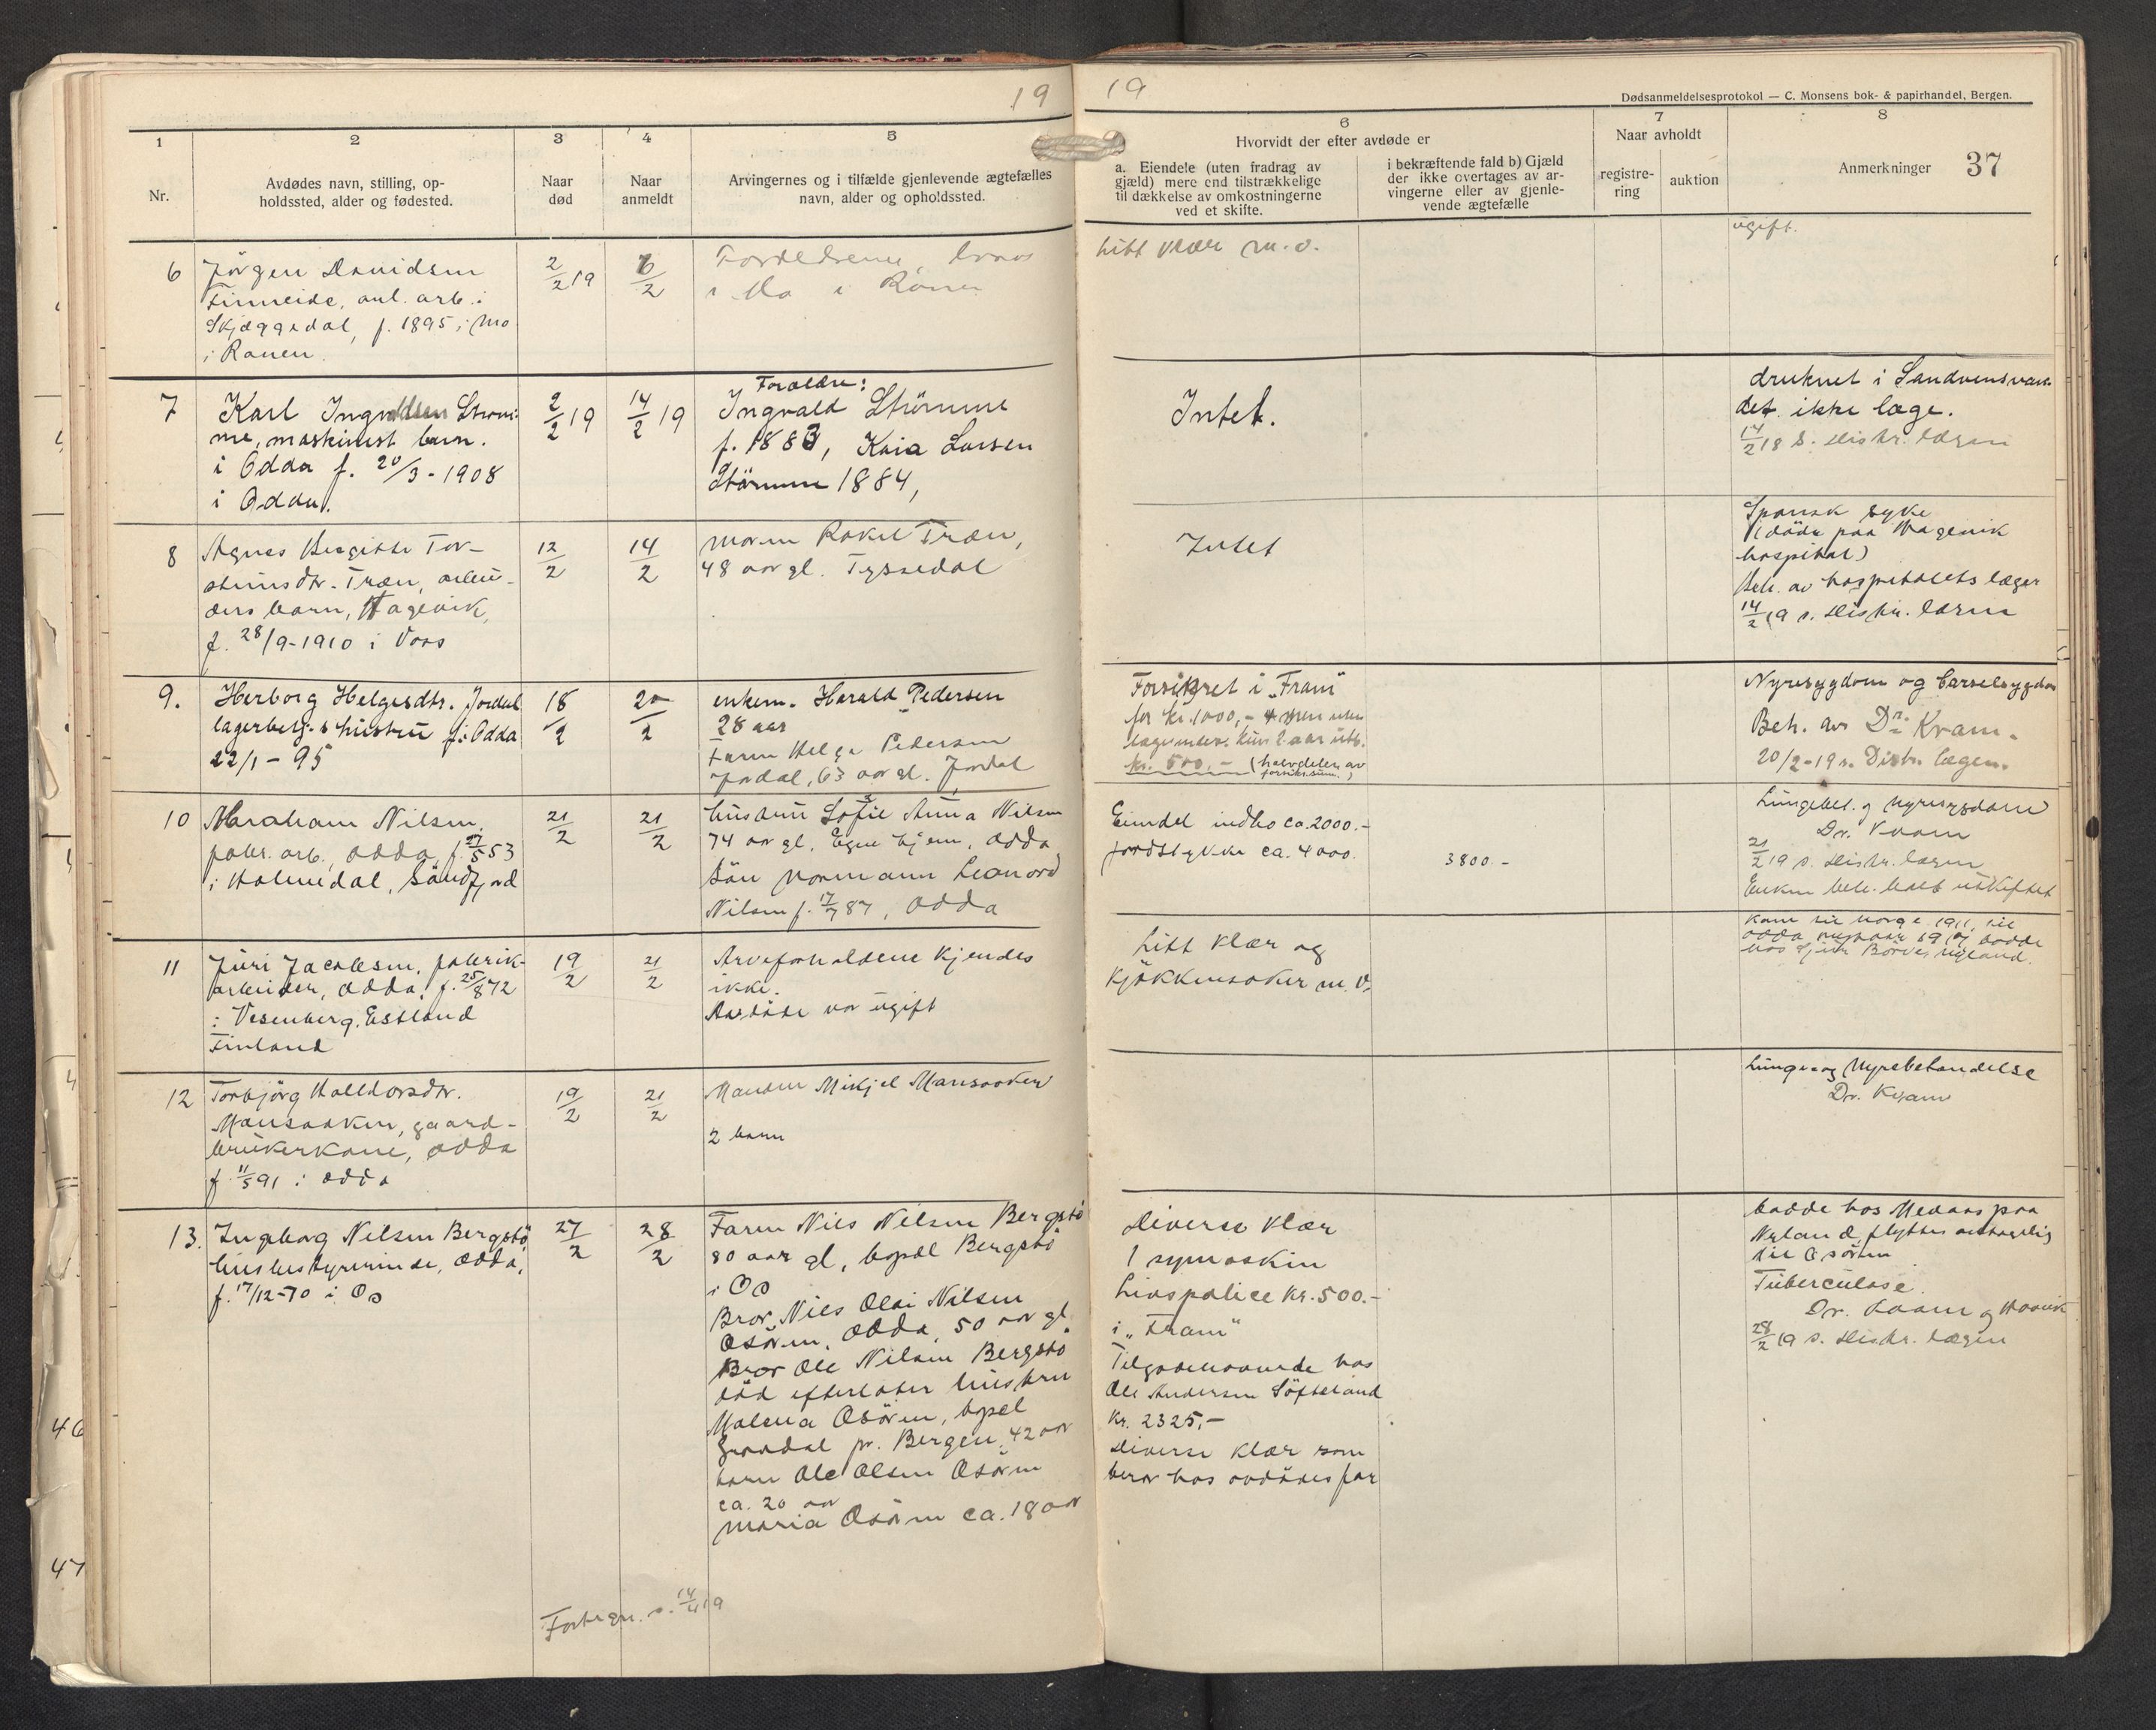 19
1
2
3
4
5
Nr.
Avdødes navn, stilling, op-
holdssted, alder og fødested.
Naar
død
Naar
anmeldt
Arvingernes og i tilfælde gjenlevende ægtefælles
navn, alder og opholdssted.
6
Jörgen Davidsen
Finneide, anl. arb. i
Skjæggedal, f. 1895 i Mo
i Ranen.
2/2 19
6/2
Forældrene, 
i Mo i Ranen
7
Karl Ingvaldsen Ström-
me, maskinist barn.
i Odda f. 20/3-1908
i Odda.
2/2 19
14/2 19
Forældre:
Ingvald Strömme
f. 1883, Kaia Larsen
Strömme 1884,
8
Agnes Bergitte Tor-
steinsdtr. Træen, arbei-
ders barn, Hagevik,
f. 28/9-1910 i Voss
12/2
14/2
Moren Rakel Træen,
48 aar gl. Tyssedal
9.
Herborg Helgesdtr. Jordal
lagerbetj.s hustru f. i Odda
22/1-95
18/2
20/2
enkem. Harald Pedersen
28 aar
Faren Helge Pedersen
Jordal, 63 aar gl. Jordal
10
Abraham Nilsen,
fabr. arb., Odda, f. 27/5 53
i Holmedal, Søndfjord
21/2
21/2
hustru Sofie Anna Nilsen
74 aar gl. Eget hjem, Odda
Sön Normann Leonard
Nilsen f. 17/7 87, Odda
11
Jüri Jacobsen, fabrik-
arbeider, Odda, f. 25/8 72
i Vesenberg, Estland
Finland
19/2
21/2
Arveforholdene kjendes
ikke.
Avdöde var ugift
12
Torbjörg Halldorsdtr.
Mansaaker, gaard-
brukerkone, Odda
f. 11/5 91 i Odda
19/2
21/2
Manden Mikjel Mansaaker
2 barn
13.
Ingeborg Nilsen Bergstö
husbestyrerinde, Odda,
f. 17/12-70 i Os
27/2
28/2
Faren Nils Nilsen Bergstö
80 aar gl, bopæl Bergstö
i Os
Bror Nils Olai Nilsen
Osören, Odda, 50 aar gl.
Bror Ole Nilsen Bergstö
död efterlater hustru
Malena Osören, bopæl
pr. Bergen, 42 aar
barn Ole Olsen Osören
ca. 20 aar
Maria Osören ca. 18 aar
Fortegn. s. 14/4 19
19
Dødsanmeldelsesprotokol — C. Monsens bok- & papirhandel, Bergen.
6
7
8
Hvorvidt der efter avdøde er
a. Eiendele (uten fradrag av
gjæld) mere end tilstrækkelige
til dækkelse av omkostningerne
ved et skifte.
i bekræftende fald b) Gjæld
der ikke overtages av ar-
vingerne eller av gjenle-
vende ægtefælle
Naar avholdt
registre-
ring
auktion
Anmerkninger
37
Litt klær m.v.
ugift.
Intet.
druknet i Sandvensvan-
det. ikke læge.
14/2 18 s. distr. lægen
Intet
Spansk syke
(döde paa Hagevik
hospital)
Beh. av hospitalets læger
14/2 19 s. distr. lægen
Forsikret i "Fram"
for kr. 1000,- men uten
lægeunders. kun 2 aar utb.
kr. 500,- (halvdelen av
forsikr.sum.)
Nyresygdom og barselsygdom
Beh. av Dr. Kvam.
20/2-19 s. Distr. lægen.
Eiendel indbo ca. 2000.-
jordstykke ca. 4000.
3800.-
Lungebet. og nyresygdom
Dr. Kvam
21/2 19 s. distr. lægen
Enken beh. boet uskiftet
Litt klær og
kjökkensaker m.v.
kom til Norge 1911, til
Odda 19 bodde
hos Börves.
Lunge og Nyrebetændelse
Dr. Kvam
Diverse klær
1 symaskin
Livspolice kr. 500.-
i "Fram"
Tilgodehavende hos
Ole Andersen Söfteland
kr. 2325,-
Diverse klær som
beror hos avdödes far
bodde hos paa
Nyland, flyttes
til Osören
Tuberculose.
Dr. Kvam og
28/2 19 s. distr. lægen
46
47